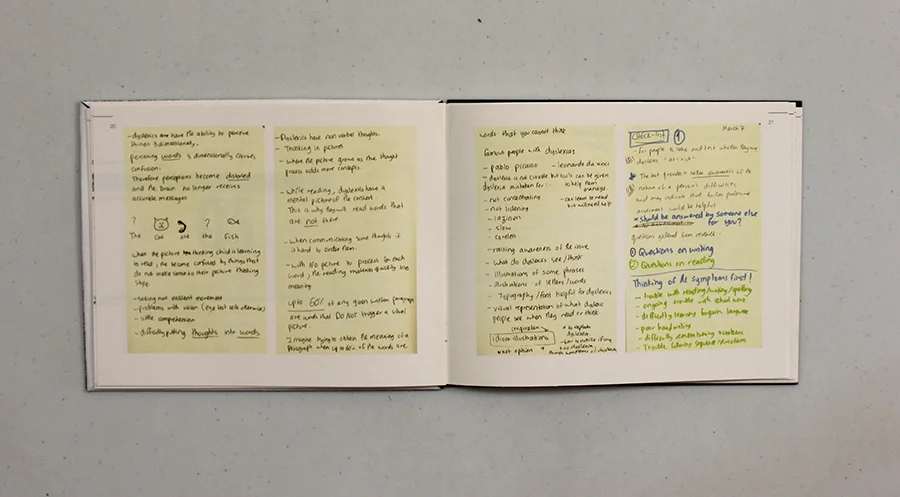 - dyslexics have the ability to perceive
things 3 dimensionally.
perceiving words 3 dimensionally causes
confusion.
Therefore perceptions become distorted
and the brain no longer receives
accurate messages
? ?
The cat ate the fish
When the picture thinking child is learning
to read, he become confused by things that
do not make sense to their picture thinking
style
- seeing non existent movement
- problems with vision
- little comprehension
- difficulty putting thoughts into words
- Dyslexics have non verbal thoughts.
- Thinking in pictures
- where the picture grows as the thought
process adds more concepts.
- while reading, dyslexics have a
mental picture of the
This is why they will read words that
are not there
- When communicating some thoughts
it hard to order them.
- with NO picture to process for each
word, the reading material quickly
meaning
upto 60% of any given written paragraph
are words that DO NOT trigger a visual
picture.
Imagine trying to obtain the meaning of a
paragraph when up to 60% of the words are
words that you cannot think
Famous people with dyslexias
- pablo picasso - leonardo da vinci
- dyslexia is not curable but tools can be given
to help them
manage
dyslexia mistaken for :-
- not concentrating
- can learn to read
but will need help
- not listening
- laziness
- slow
- careless
- raising awareness of the issue
- What do dyslexics see/think
- Illustrations of some phrases
- illustrations of letters/words
- Typography/font helpful for dyslexics
- visual representation of what dyslexic
people see when they read or think
inspiration
idiom illustrations
* to explain
dyslexia
* last option
March 7
Check-list 1
- for people to take and test whether they are
dyslexic "at-risk"
* The test provides
nature of a person's difficulties
and may indicate that further professional
would be helpful
* should be answered by someone else
for you?
questions gathered from research :-
1 Questions on writing
2 Questions on reading
Thinking of the symptoms first!
- trouble with reading/writing/spelling
- ongoing trouble with school work
- difficulty learning foreign language
- poor handwriting
- difficulty remembering numbers
- Trouble following sequence/directions